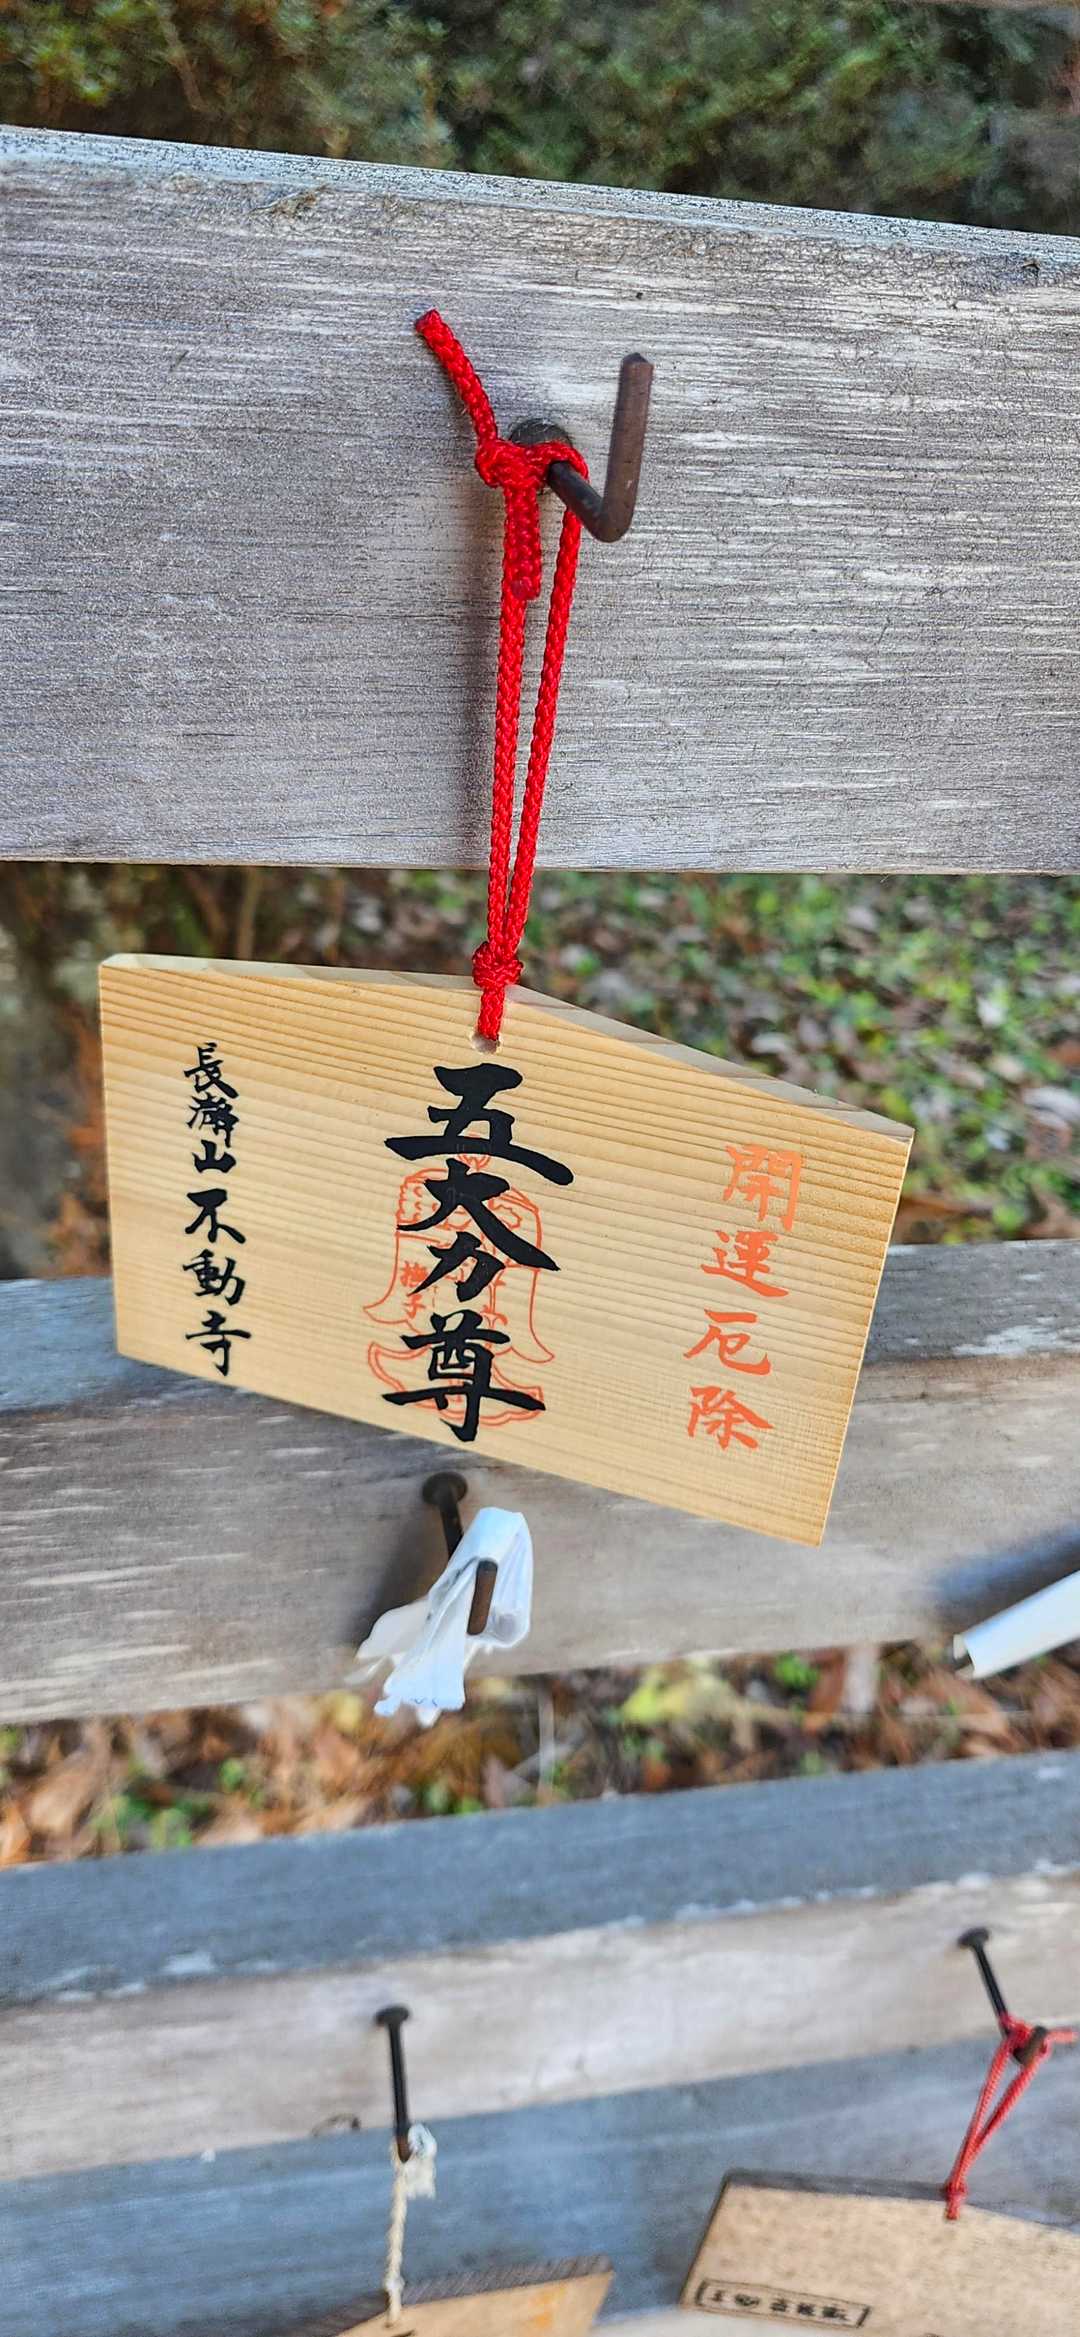 開運厄除
五大力尊
撫子
長瀞山不動寺